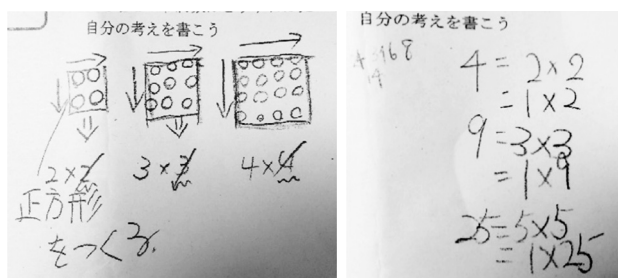 自分の考えを書こう
2×2 3×3 4×4
正方形
をつくる。
自分の考えを書こう
4=2×2
=1×2
9=3×3
=1×9
25=5×5
=1×25